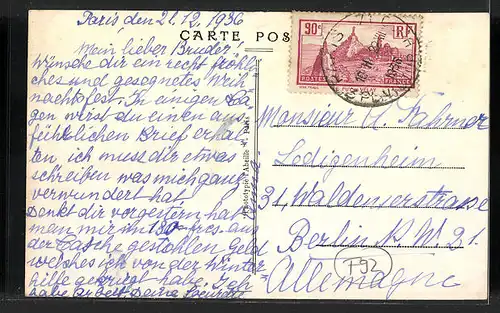 Paris den 21.12.1936
CARTE POS
Mein lieber Bruder!
Wünsche dir ein recht fröhli
ches und gesegnetes Weih
nachtsfest. In einigen Ta
gen wirst du einen aus
führlichen Brief erhal
ten, ich muss dir etwas
schreiben was mich ganz
verwundert hat.
Denkt dir vorgestern hat
man mir im 180 frcs aus
der Tasche gestohlen Geld
welches ich von der Winter
hilfe gekriegt habe. Ich
habe Arbeit Deine
90c
RF
POSTES
Monsieur A. Fahrner
Ledigenheim
31, Waldenserstrasse
Berlin N.W. 21.
Allemagne
T92